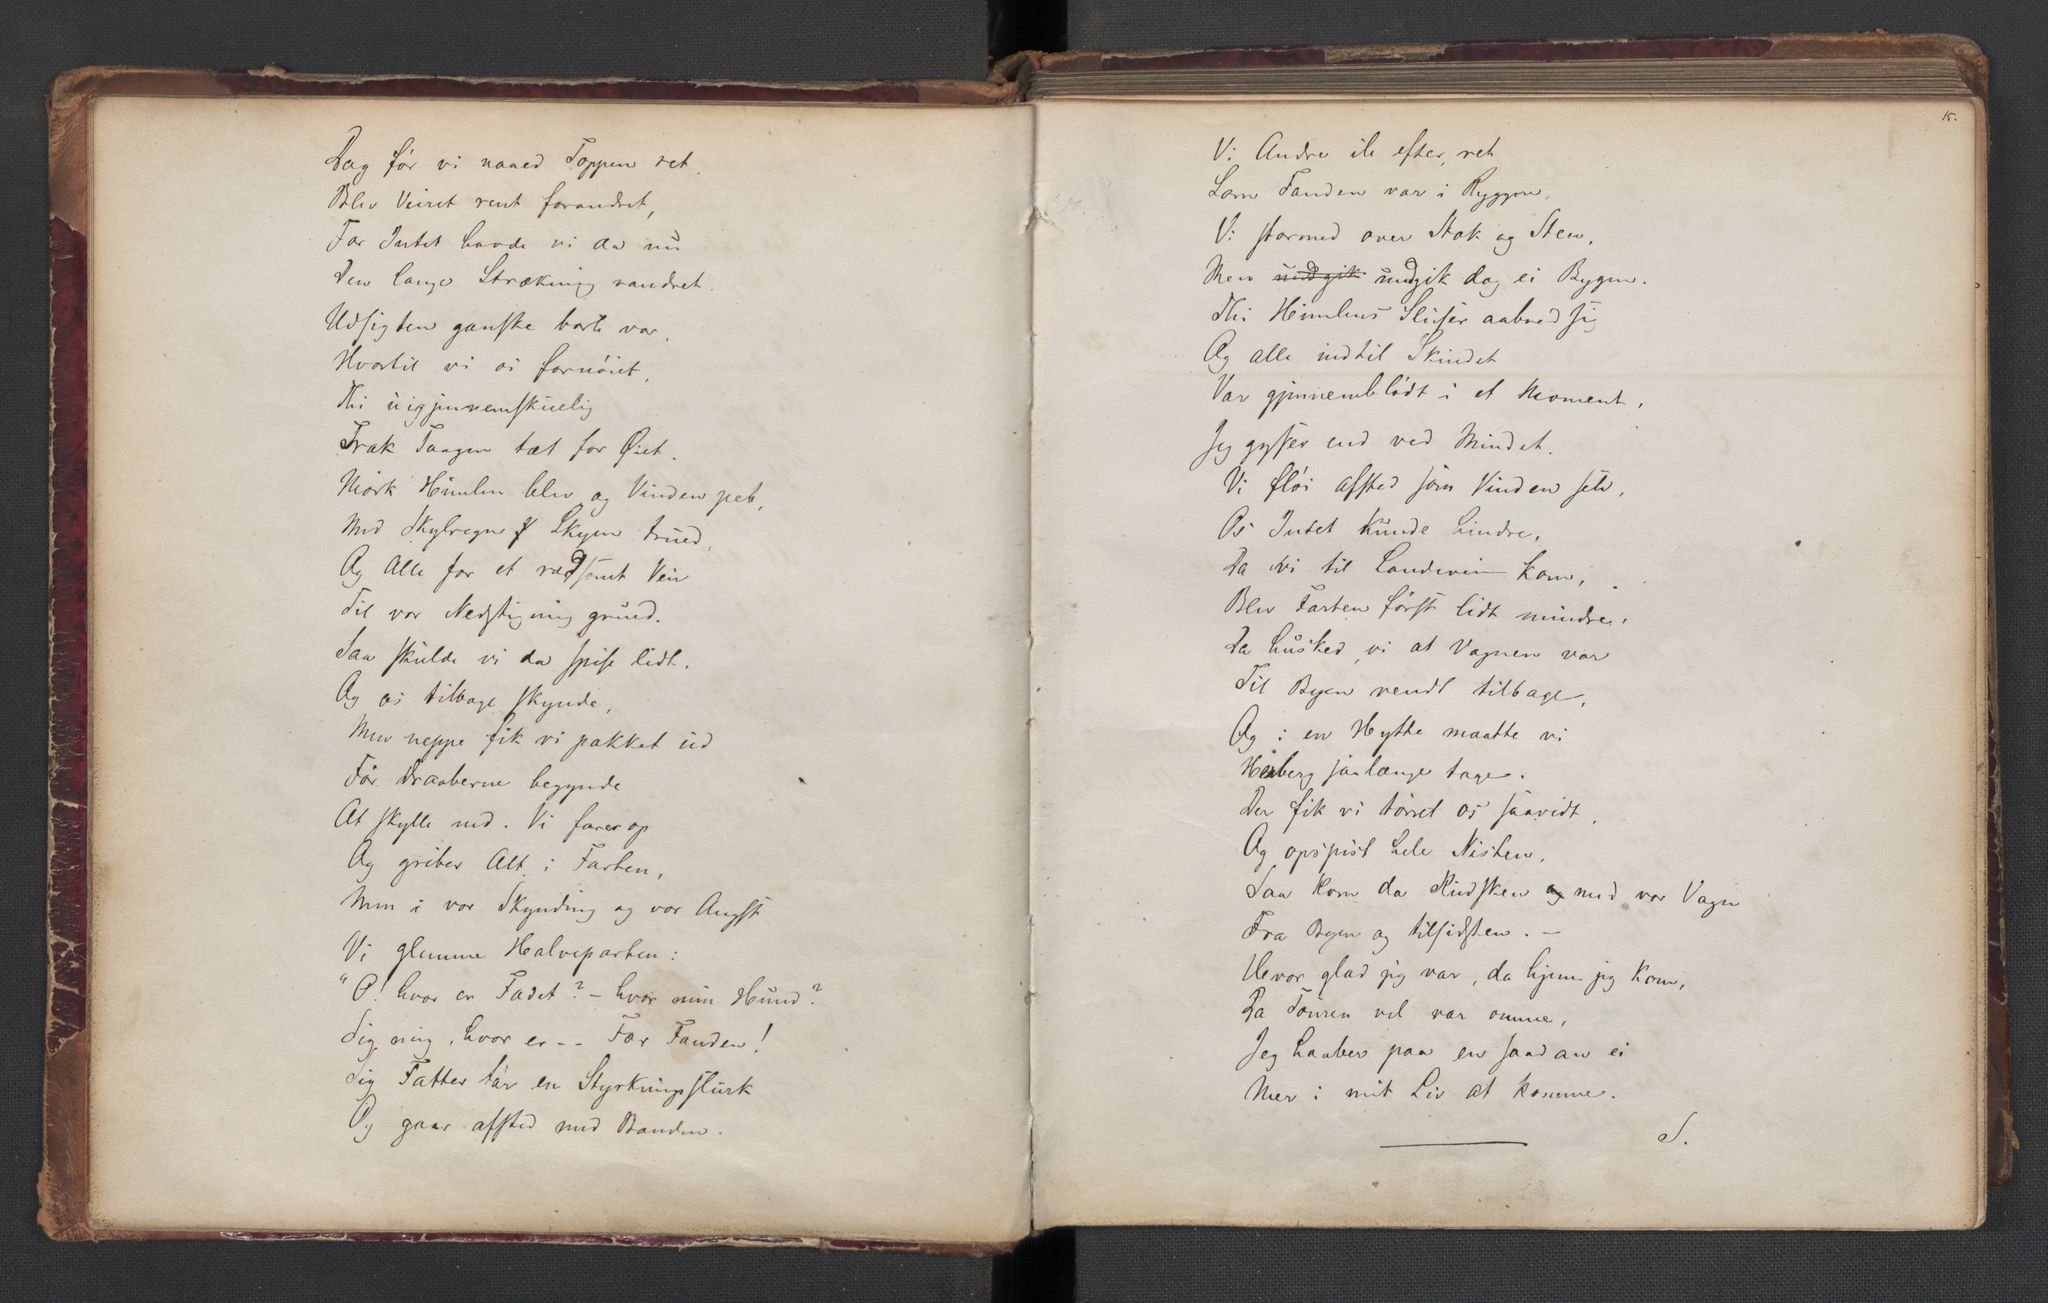 Dog før vi naaed Toppen ret
Blev Veiret rent forandret,
For Intet havde vi da nu
Den lange Strækning vandret.
Udsigten ganske borte var,
Hvortil vi os fornøiet,
Thi uigjennemskuelig
Trak Taagen tæt for Øiet.
Mørk Himlen blev og Vinden peb,
Med Skylregn Skyen trued,
Og Alle for et rædsomt Veir
Til vor Nedstigning grued.
Saa skulde vi da spise lidt.
Og os tilbage skynde,
Men neppe fik vi pakket ud
Før Draaberne begynde
At skylle ned. Vi farer op
Og griber Alt i Farten,
Men i vor Skynding og vor Angst
Vi glemme Halveparten:
"O! hvor er Fadet? – hvor min Hund?
Sig mig, hvor er -- For Fanden!
Sig Fatter tar en Styrkningsslurk
Og gaar afsted med Banden.
15.
Vi Andre ile efter, ret
Som Fanden var i Ryggen,
Vi stormed over Stok og Sten,
Men undgik undgik dog ei Bygen.
Thi Himlens Sluser aabned sig
Og alle indtil Skindet
Var gjennemblødt i et Moment,
Jeg gyser end ved Mindet.
Vi fløi afsted som Vinden selv,
Os Intet kunde hindre,
Da vi til Landevein kom,
Blev Farten først lidt mindre.
Da husked vi at Vognen var
Til Byen vendt tilbage,
Og i en Hytte maatte vi
Herberg saalænge tage.
Der fik vi tørret os saavidt,
Og opspist hele Nisten,
Saa kom da Kudsken og med vor Vogn
Fra Byen og tilsidsten. –
Hvor glad jeg var, da hjem jeg kom,
Da Touren vel var omme,
Jeg haaber paa en saadan ei
Mer i mit Liv at komme.
S.